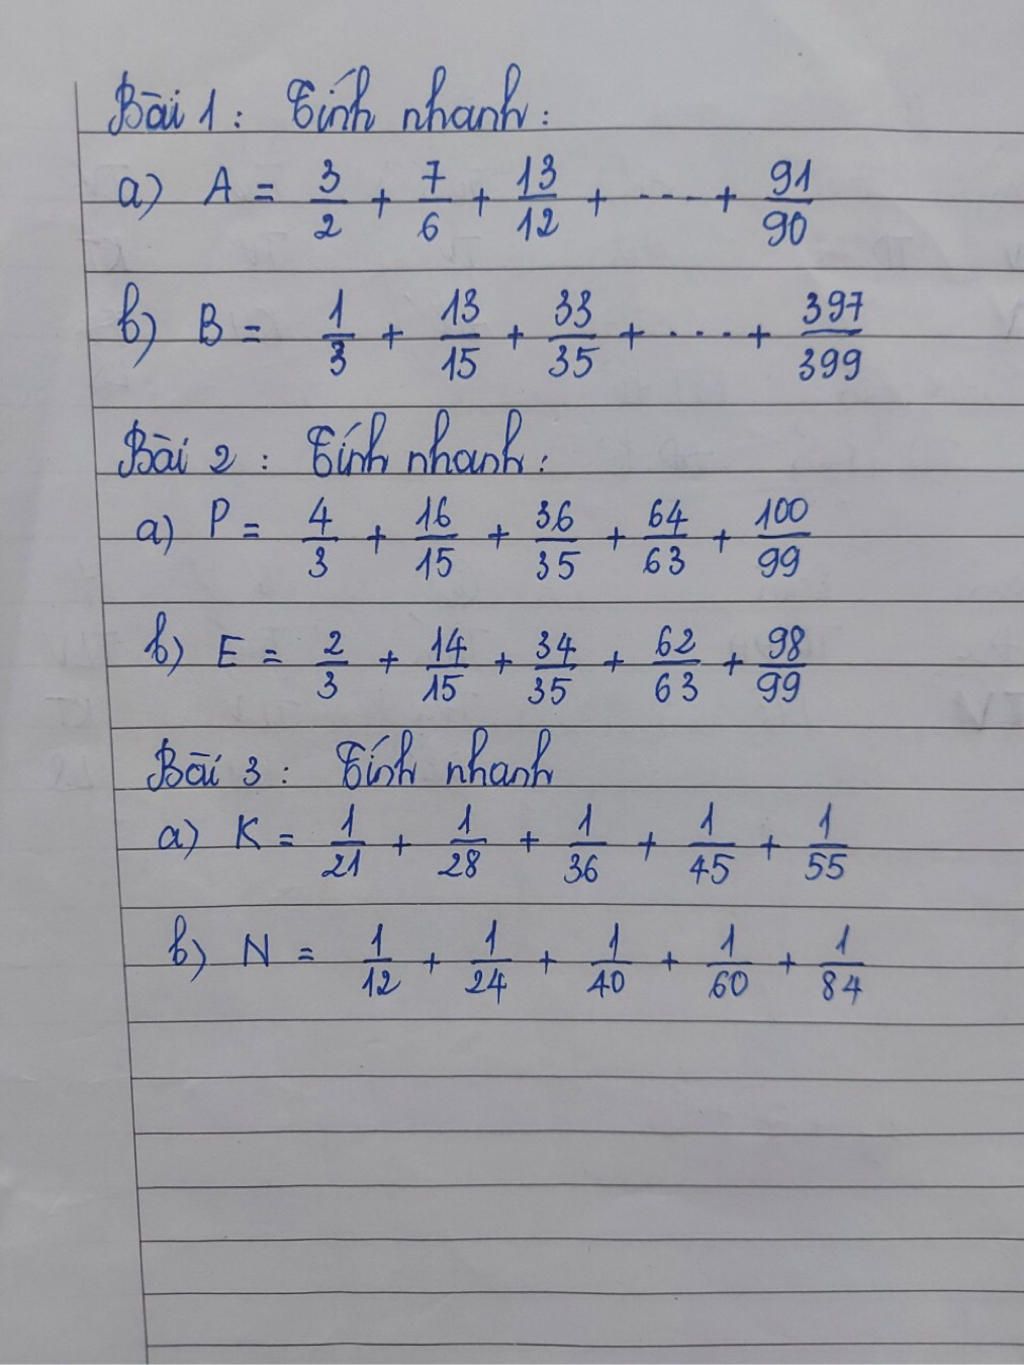 Bài 1: Tính nhanh:
a) A = 3/2 + 7/6 + 13/12 + ---- + 91/90
b) B = 1/3 + 13/15 + 33/35 + ---- + 397/399
Bài 2: Tính nhanh:
a) P = 4/3 + 16/15 + 36/35 + 64/63 + 100/99
b) E = 2/3 + 14/15 + 34/35 + 62/63 + 98/99
Bài 3: Tính nhanh
a) K = 1/21 + 1/28 + 1/36 + 1/45 + 1/55
b) N = 1/12 + 1/24 + 1/40 + 1/60 + 1/84